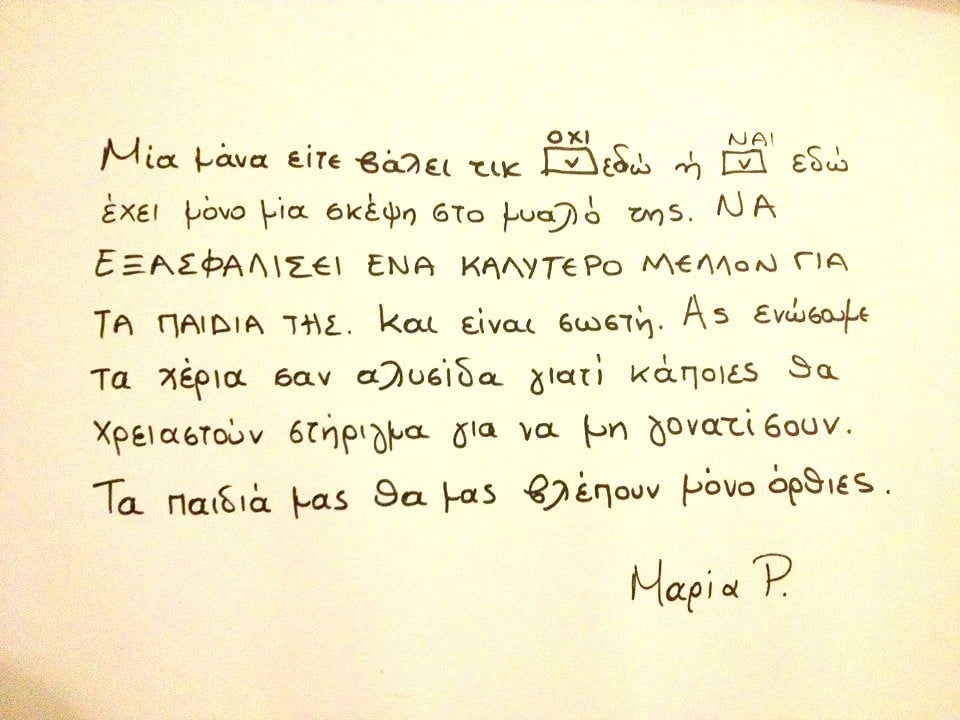 ΟΧΙ ΝΑΙ
Μία μάνα είτε βάλει τικ ✓ εδώ ή ✓ εδώ
έχει μόνο μία σκέψη στο μυαλό της. ΝΑ
ΕΞΑΣΦΑΛΙΣΕΙ ΕΝΑ ΚΑΛΥΤΕΡΟ ΜΕΛΛΟΝ ΓΙΑ
ΤΑ ΠΑΙΔΙΑ ΤΗΣ. Και είναι σωστή. Ας ενώσουμε
τα χέρια σαν αλυσίδα γιατί κάποιες θα
χρειαστούν στήριγμα για να μη γονατίσουν.
Τα παιδιά μας θα μας βλέπουν μόνο όρθιες.
Μαρία Ρ.